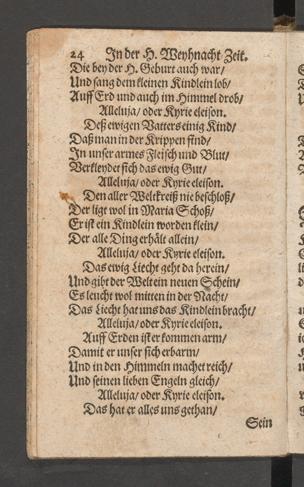 24 In der H. Weyhnacht Zeit.
Die bey der H. Geburt auch war/
Und sang dem kleinen Kindlein lob/
Auff Erd und auch im Himmel drob/
Alleluja/ oder Kyrie eleison.
Deß ewigen Vatters einig Kind/
Daß man in der Krippen find/
In unser armes Fleisch und Blut/
Verkleydet sich das ewig Gut/
Alleluja/ oder Kyrie eleison.
Den aller Weltkreiß nie beschloß/
Der lige wol in Maria Schoß/
Er ist ein Kindlein worden klein/
Der alle Ding erhält allein/
Alleluja/ oder Kyrie eleison.
Das ewig Liecht geht da herein/
Und gibt der Welt ein neuen Schein/
Es leucht wol mitten in der Nacht/
Das Liecht hat uns das Kindlein bracht/
Alleluja/ oder Kyrie eleison.
Auff Erden ist er kommen arm/
Damit er unser sich erbarm/
Und in den Himmeln machet reich/
Und seinen lieben Engeln gleich/
Alleluja/ oder Kyrie eleison.
Das hat er alles uns gethan/
Sein